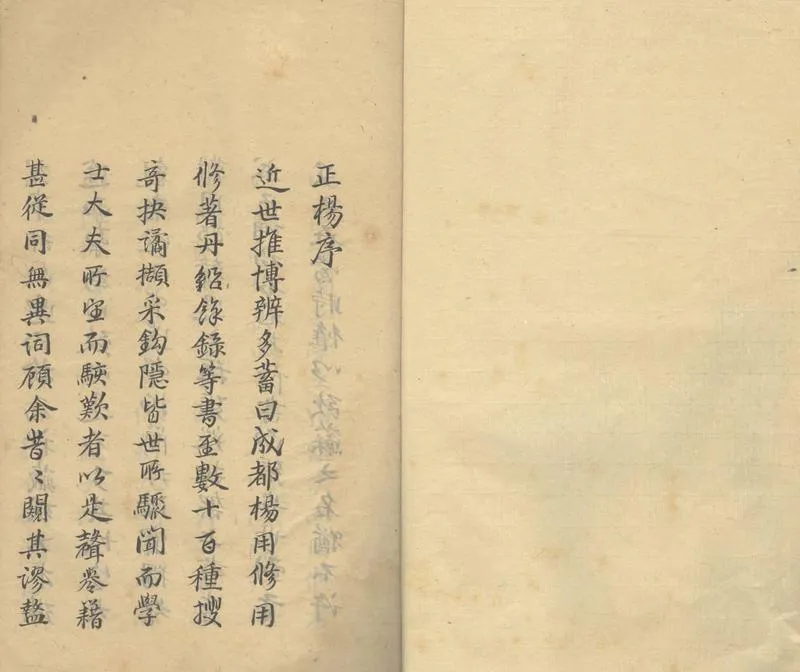 正楊序
近世推博辨多蓄曰成都楊用修用
修著丹鉛餘錄等書至數十百種搜
奇抉譎擷采鈎隱皆世所驟聞而學
士大夫所望而駴歎者以是聲譽籍
甚從同無異詞顧余昔〻闚其謬盭